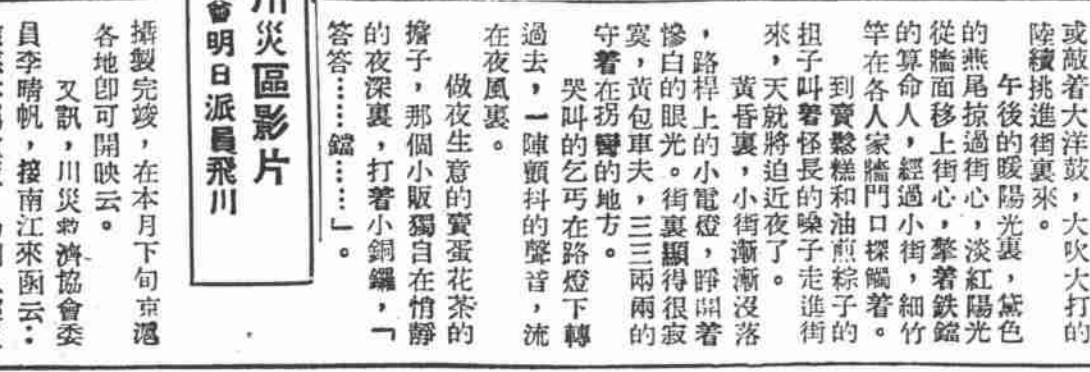 或敲着大洋鼓，大吹大打的
陸續挑進街裏來。
午後的暖陽光裏，黛色
的燕尾掠過街心，淡紅陽光
從牆面移上街心，擎着鉄鐺
的算命人，經過小街，細竹
竿在各人家牆門口探觸着。
到賣鬆糕和油煎粽子的
担子叫着怪長的嗓子走進街
來，天就將迫近夜了。
黃昏裏，小街漸漸沒落
，路桿上的小電燈，睜開着
慘白的眼光。街裏顯得很寂
寞，黃包車夫，三三兩兩的
守着在拐彎的地方。
哭叫的乞丐在路燈下轉
過去，一陣顫抖的聲音，流
在夜風裏。
做夜生意的賣蛋花茶的
擔子，那個小販獨自在悄靜
的夜深裏，打着小銅鑼，「
答答……鐺……」。
川災區影片
會明日派員飛川
攝製完竣，在本月下旬京滬
各地卽可開映云。
又訊，川災救濟協會委
員李晴帆，接南江來函云：